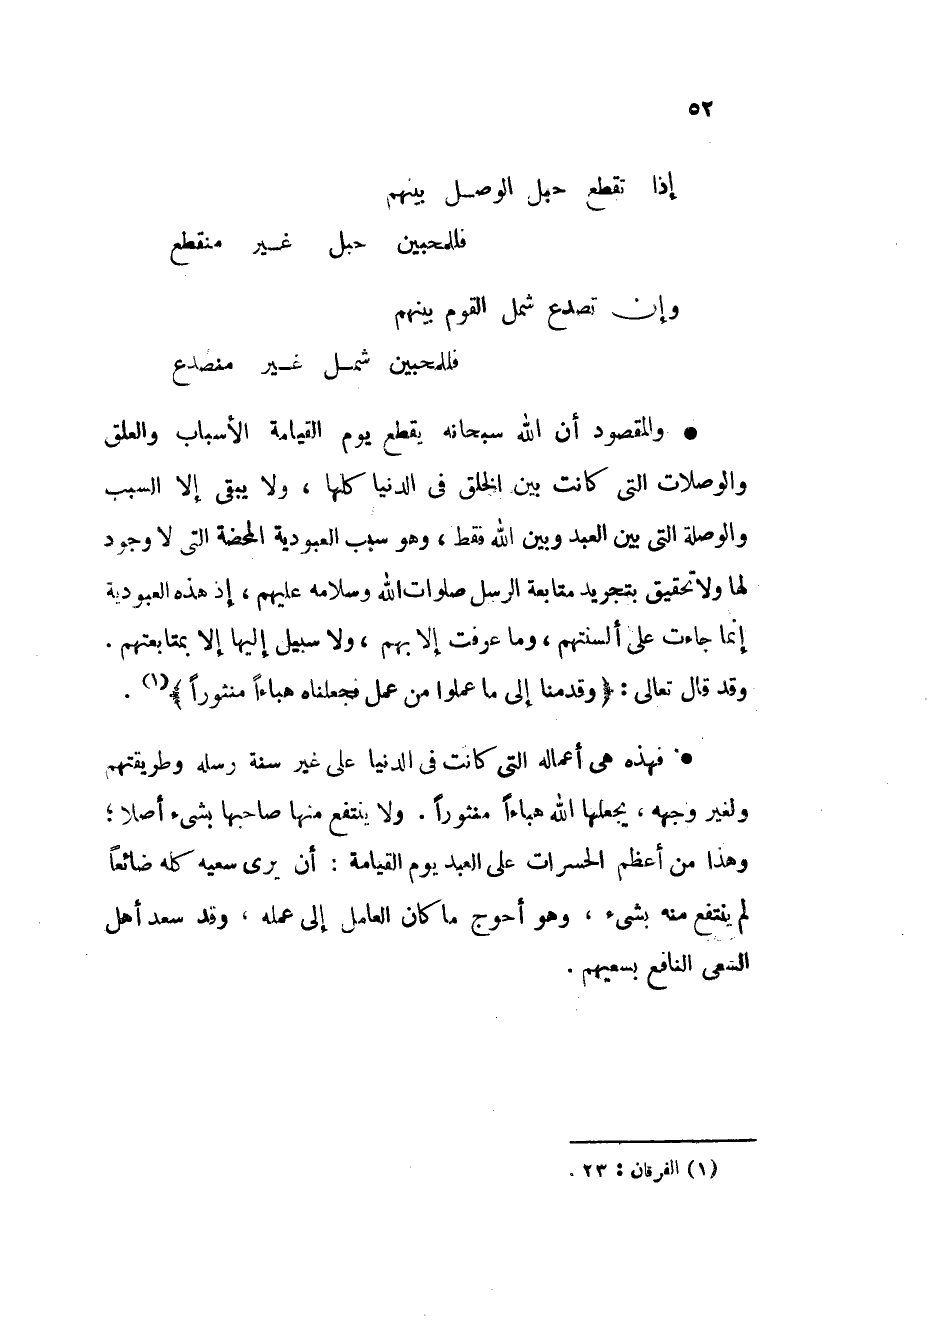 ٥٢
إذا تقطع حبل الوصل بينهم
فللمحبين حبل غير منقطع
وإن تصدع شمل القوم بينهم
فللمحبين شمل غير منصدع
● والمقصود أن الله سبحانه يقطع يوم القيامة الأسباب والعلق
والوصلات التى كانت بين الخلق فى الدنيا كلها ، ولا يبقى إلا السبب
والوصلة التى بين العبد وبين الله فقط ، وهو سبب العبودية المحضة التى لا وجود
لها ولا تحقيق بتجريد متابعة الرسل صلوات الله وسلامه عليهم ، إذ هذه العبودية
إنما جاءت على ألسنتهم ، وما عرفت إلا بهم ، ولا سبيل إليها إلا بمتابعتهم .
وقد قال تعالى : ﴿ وقدمنا إلى ما عملوا من عمل فجعلناه هباءاً منثوراً ﴾(١) .
● فهذه هى أعماله التى كانت فى الدنيا على غير سنة رسله وطريقتهم
ولغير وجهه ، يجعلها الله هباءاً منثوراً . ولا ينتفع منها صاحبها بشىء أصلا ؛
وهذا من أعظم الحسرات على العبد يوم القيامة : أن يرى سعيه كله ضائعاً
لم ينتفع منه بشىء ، وهو أحوج ما كان العامل إلى عمله ، وقد سعد أهل
السعى النافع بسعيهم .
(١) الفرقان : ٢٣ .